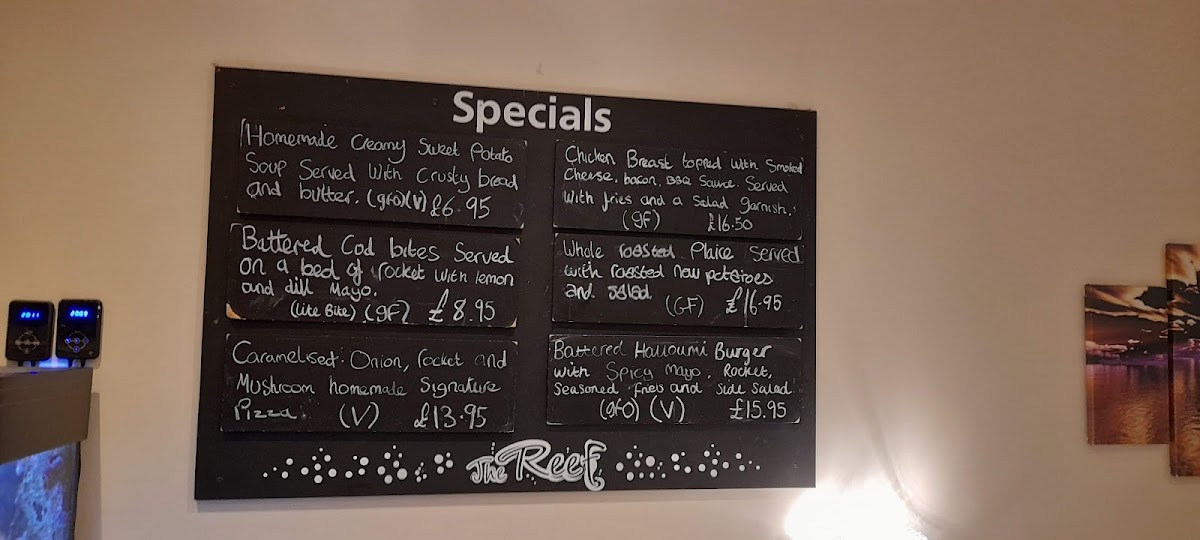 Specials
Homemade Creamy Sweet Potato
Soup Served With Crusty bread
and butter. (gfo)(V) £6.95
Battered Cod bites Served
on a bed of rocket with lemon
and dill Mayo.
(Lite Bite) (gF) £8.95
Caramelised Onion, rocket and
Mushroom homemade Signature
Pizza (V) £13.95
Chicken Breast topped with Smoked
Cheese, bacon, BBQ Sauce. Served
with fries and a Salad garnish.
(gF) £16.50
Whole roasted Plaice Served
with roasted new potatoes
and salad
(GF) £16.95
Battered Halloumi Burger
with Spicy Mayo, Rocket,
Seasoned fries and side salad
(gfo) (V) £15.95
The Reef
2011
2009